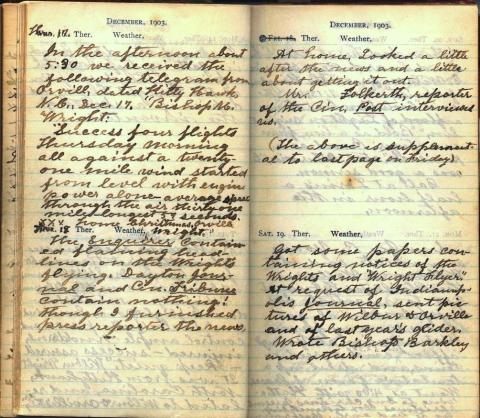 DECEMBER, 1903.
Thurs. 17. Ther. Weather,
In the afternoon about
5:30 we received the
following telegram from
Orville, dated Kitty Hawk,
N.C., Dec. 17. "Bishop M.
Wright:
"Success four flights
Thursday morning
all against a twenty-
one mile wind started
from level with engine
power alone average speed
through the air thirty one
miles longest 57 seconds.
home Christmas. Orville
18 Ther. Weather,
Wright."
The Enquirer contain-
ed flaming head-
lines on the Wrights'
flying. Dayton Jour-
nal and Cin. Tribune
contain nothing!
though I furnished
press reporter the news.
DECEMBER, 1903.
FRI. 18. Ther. Weather,
At home, Looked a little
after the news and a little
about getting it out.
Mr. Folkerth, reporter
of the Cin. Post interviews
us.
(The above is supplement-
al to last page on Friday).
SAT. 19. Ther. Weather,
Got some papers con-
taining notices of the
Wrights and "Wright Flyer"
At request of Indianap-
olis Journal, sent pic-
tures of Wilbur & Orville
and of last year's glider.
Wrote Bishop Barkley
and others.